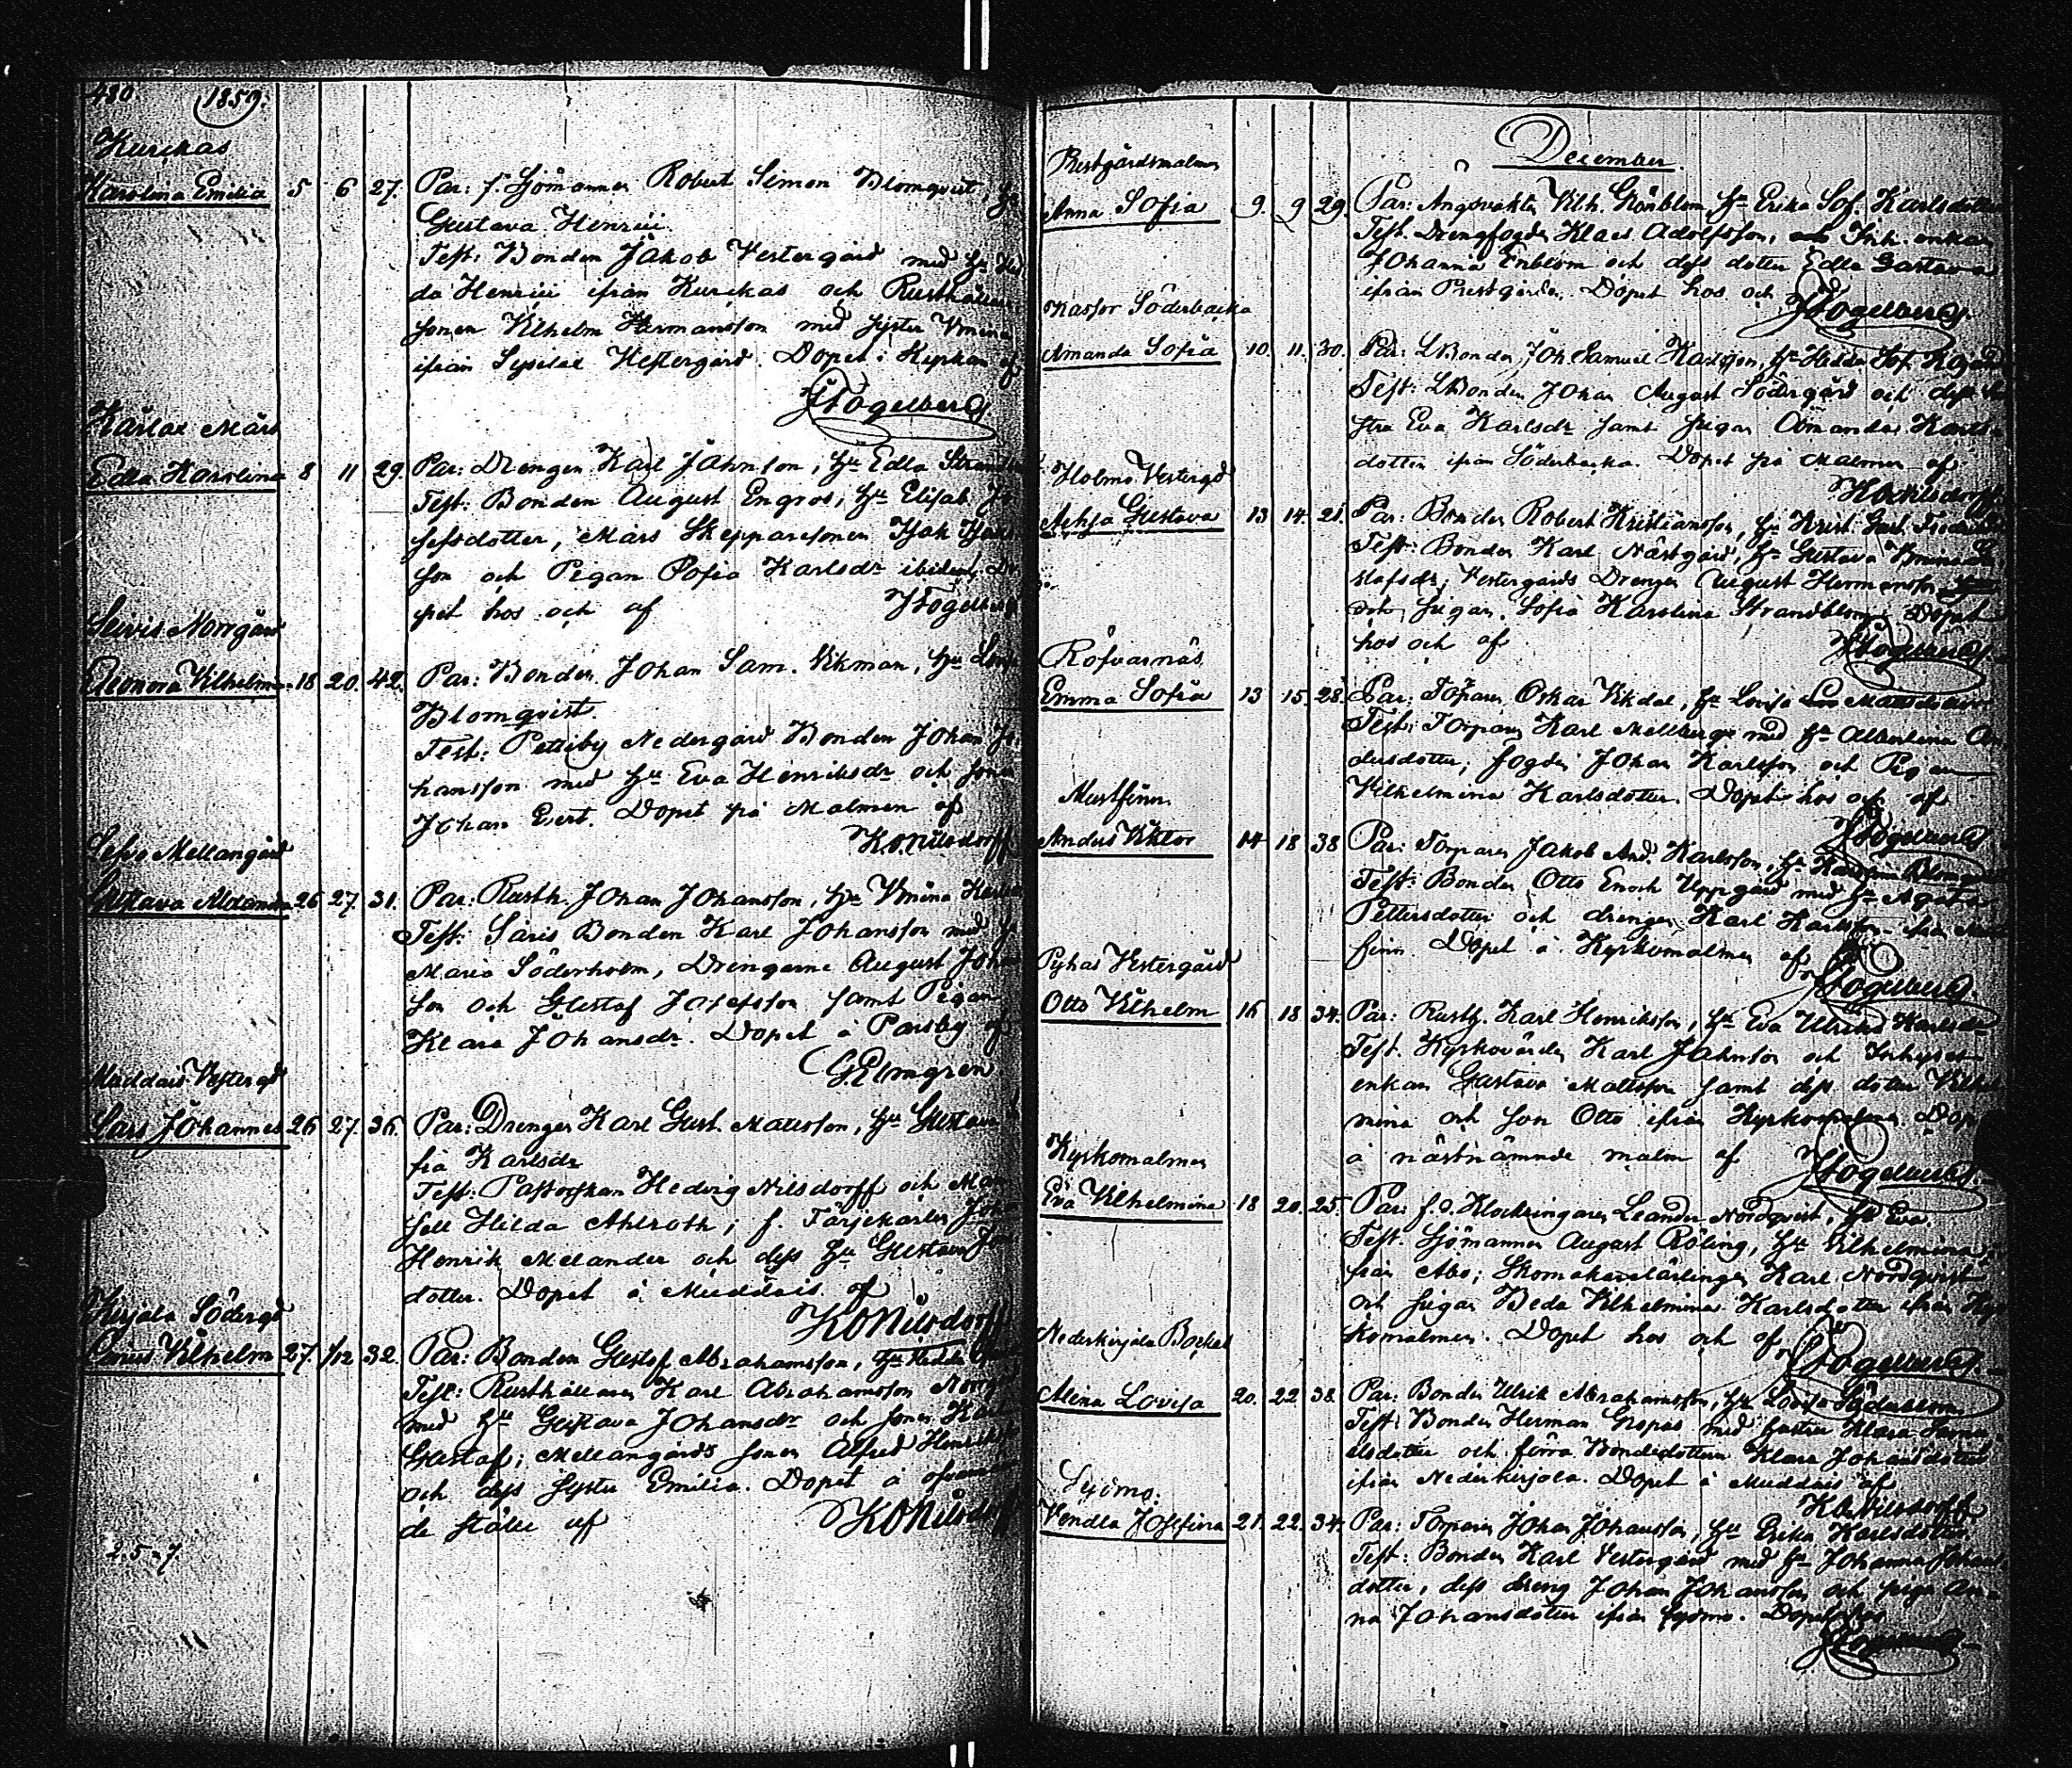 480 1859.
Kurckas
Karolina Emilia 5 6 27. Par: f. Sjömannen Robert Simon Blomqvist, Hu
Gustava Henrici.
Test: Bonden Jakob Vestergård med Hu Hed
da Henrici ifrån Kurckas och Rusthållare
sonen Vilhelm Hermansson med syster Vmina
ifrån Sysilax Vestergård. Dopet i Kyrkan af
JFogelberg
Kärlax Mårs
Edla Karolina 8 11 29. Par: Drengen Karl Jahnson, Hu Edla
Test: Bonden August Engros, Hu Elisab. Jo
sefsdotter, Mårs Skepparesonen Isak Isaks
son och Pigan Sofia Karlsdr ibidem, Do
pet hos och af JFogelberg
Norrgård
Eleonora Vilhelmina 18 20. 42. Par: Bonden Johan Sam. Vikman, Hu
Blomqvist.
Test: Petteby Nedergård Bonden Johan Jo
hansson med Hu Eva Henriksdr och sonen
Johan Evert. Dopet på Malmen af
KONilsdorff
Mellangård
Gustava 26 27. 31. Par: Rusth. Johan Johansson, Hu Vmina
Test: Saris Bonden Karl Johansson med Hu
Maria Söderholm, Drengarne August Johans
son och Gustaf Josefsson samt Pigan
Klara Johansdr. Dopet å Parsby af
Elmgren
Muddais Vestergd
Lars Johannes 26 27. 36. Par: Drengen Karl Gust. Mattsson, Hu Gustava
fia Karlsdr
Test: Pastorskan Hedvig Nilsdorff och Mam
sell Hilda Ahlroth; f. Färjekarlen
Henrik Melander och dess Hu Gustava
dotter. Dopet å Muddais af
KONilsdorff
Kirjala Södergd
Vilhelm 27. 1/12 32. Par: Bonden Gustaf Abrahamsson, Hu Hedda
Test: Rusthållaren Karl Abrahamsson Norrgård
med Hu Gustava Johansdr och sonen Karl
Gustaf; Mellangårds sonen Alfred Henriksson
och dess syster Emilia. Dopet å ofvannämn
de ställe af KONilsdorff
2.5-7
December.
Prestgårdsmalmen
Anna Sofia 9. 9 29. Par: Ängsvakten Vilh. Grönblom, Hu Erika Sof. Karlsdotter
Test. Drengfogden Klaes Adolfsson, Inh. enkan
Johanna Enblom och dess dotter Edla Gustava
ifrån Prestgården. Dopet hos och af
JFogelberg.
Söderbacka
Amanda Sofia 10. 11. 30. Par: LBonden Joh. Samuel Karlsson, Hu Hedda Sof.
Test: LBonden Johan August Södergård och dess hu
stru Eva Karlsdr samt pigan Amanda Karls
dotter ifrån Söderbacka. Dopet på Malmen af
KONilsdorff
Holmo Vestergd
Gustava 13 14. 21. Par: Bonden Robert Kristiansson, Hu Krist. Gust.
Test: Bonden Karl Nästgård, Hu Gustava Vmina Gu
stafsdr; Vestergårds Drengen August Hermansson
och pigan Sofia Karolina Strandblom. Dopet
hos och af JFogelberg
Röfvarnäs
Emma Sofia 13 15. 28. Par: Torparen Oskar Vikdal, Hu Lovisa Mattsdotter
Test: Torparen Karl Mellberg med Hu Albertina An
dersdotter; Fogden Johan Karlsson och Pigan
Vilhelmina Karlsdotter. Dopet hos och af
JFogelberg
Mustfinn
Anders Viktor 14 18 38 Par: Torparen Jakob And. Karlsson, Hu Karolina Blomqvist
Test: Bonden Otto Enoch Uppgård med Hu Agata
Pettersdotter och drengen Karl Karlsson ifrån Must
finn. Dopet å Kyrkomalmen af
JFogelberg.
Pyhas Vestergård
Otto Vilhelm 16 18 34. Par: Rusth. Karl Henriksson, Hu Eva Ulrika Karlsdr
Test. Kyrkovärden Karl Jahnson och Inhyses
enkan Gustava Mattsson samt dess dotter Vilhel
mina och son Otto ifrån Kyrkomalmen Dopet
å nästnämnde malm af JFogelberg.
Kyrkomalmen
Eva Vilhelmina 18 20. 25. Par: f.d. Klockringaren Leander Nordqvist, Hu Eva.
Test. Sjömannen August Röling, Hu Vilhelmina
från Åbo; Skomakarelärlingen Karl Nordqvist
och pigan Beda Vilhelmina Karlsdotter ifrån Kyr
komalmen. Dopet hos och af
JFogelberg.
Nederkirjala Bockas
Mina Lovisa 20. 22 38. Par: Bonden Ulrik Abrahamsson, Hu Lovisa Söderblom
Test: Bonden Herman Gropas med hustru Klara
elsdotter och förra Bondedottern Klara Johansdotter
ifrån Nederkirjala. Dopet å Muddais af
KONilsdorff
Sydmo.
Vendla Josefina 21. 22. 34. Par: Torparen Johan Johansson, Hu Erika Karlsdotter
Test: Bonden Karl Vestergård med Hu Johanna Johans
dotter, dess dreng Johan Johansson och piga An
na Johansdotter ifrån Sydmo. Dopet hos
JFogelberg